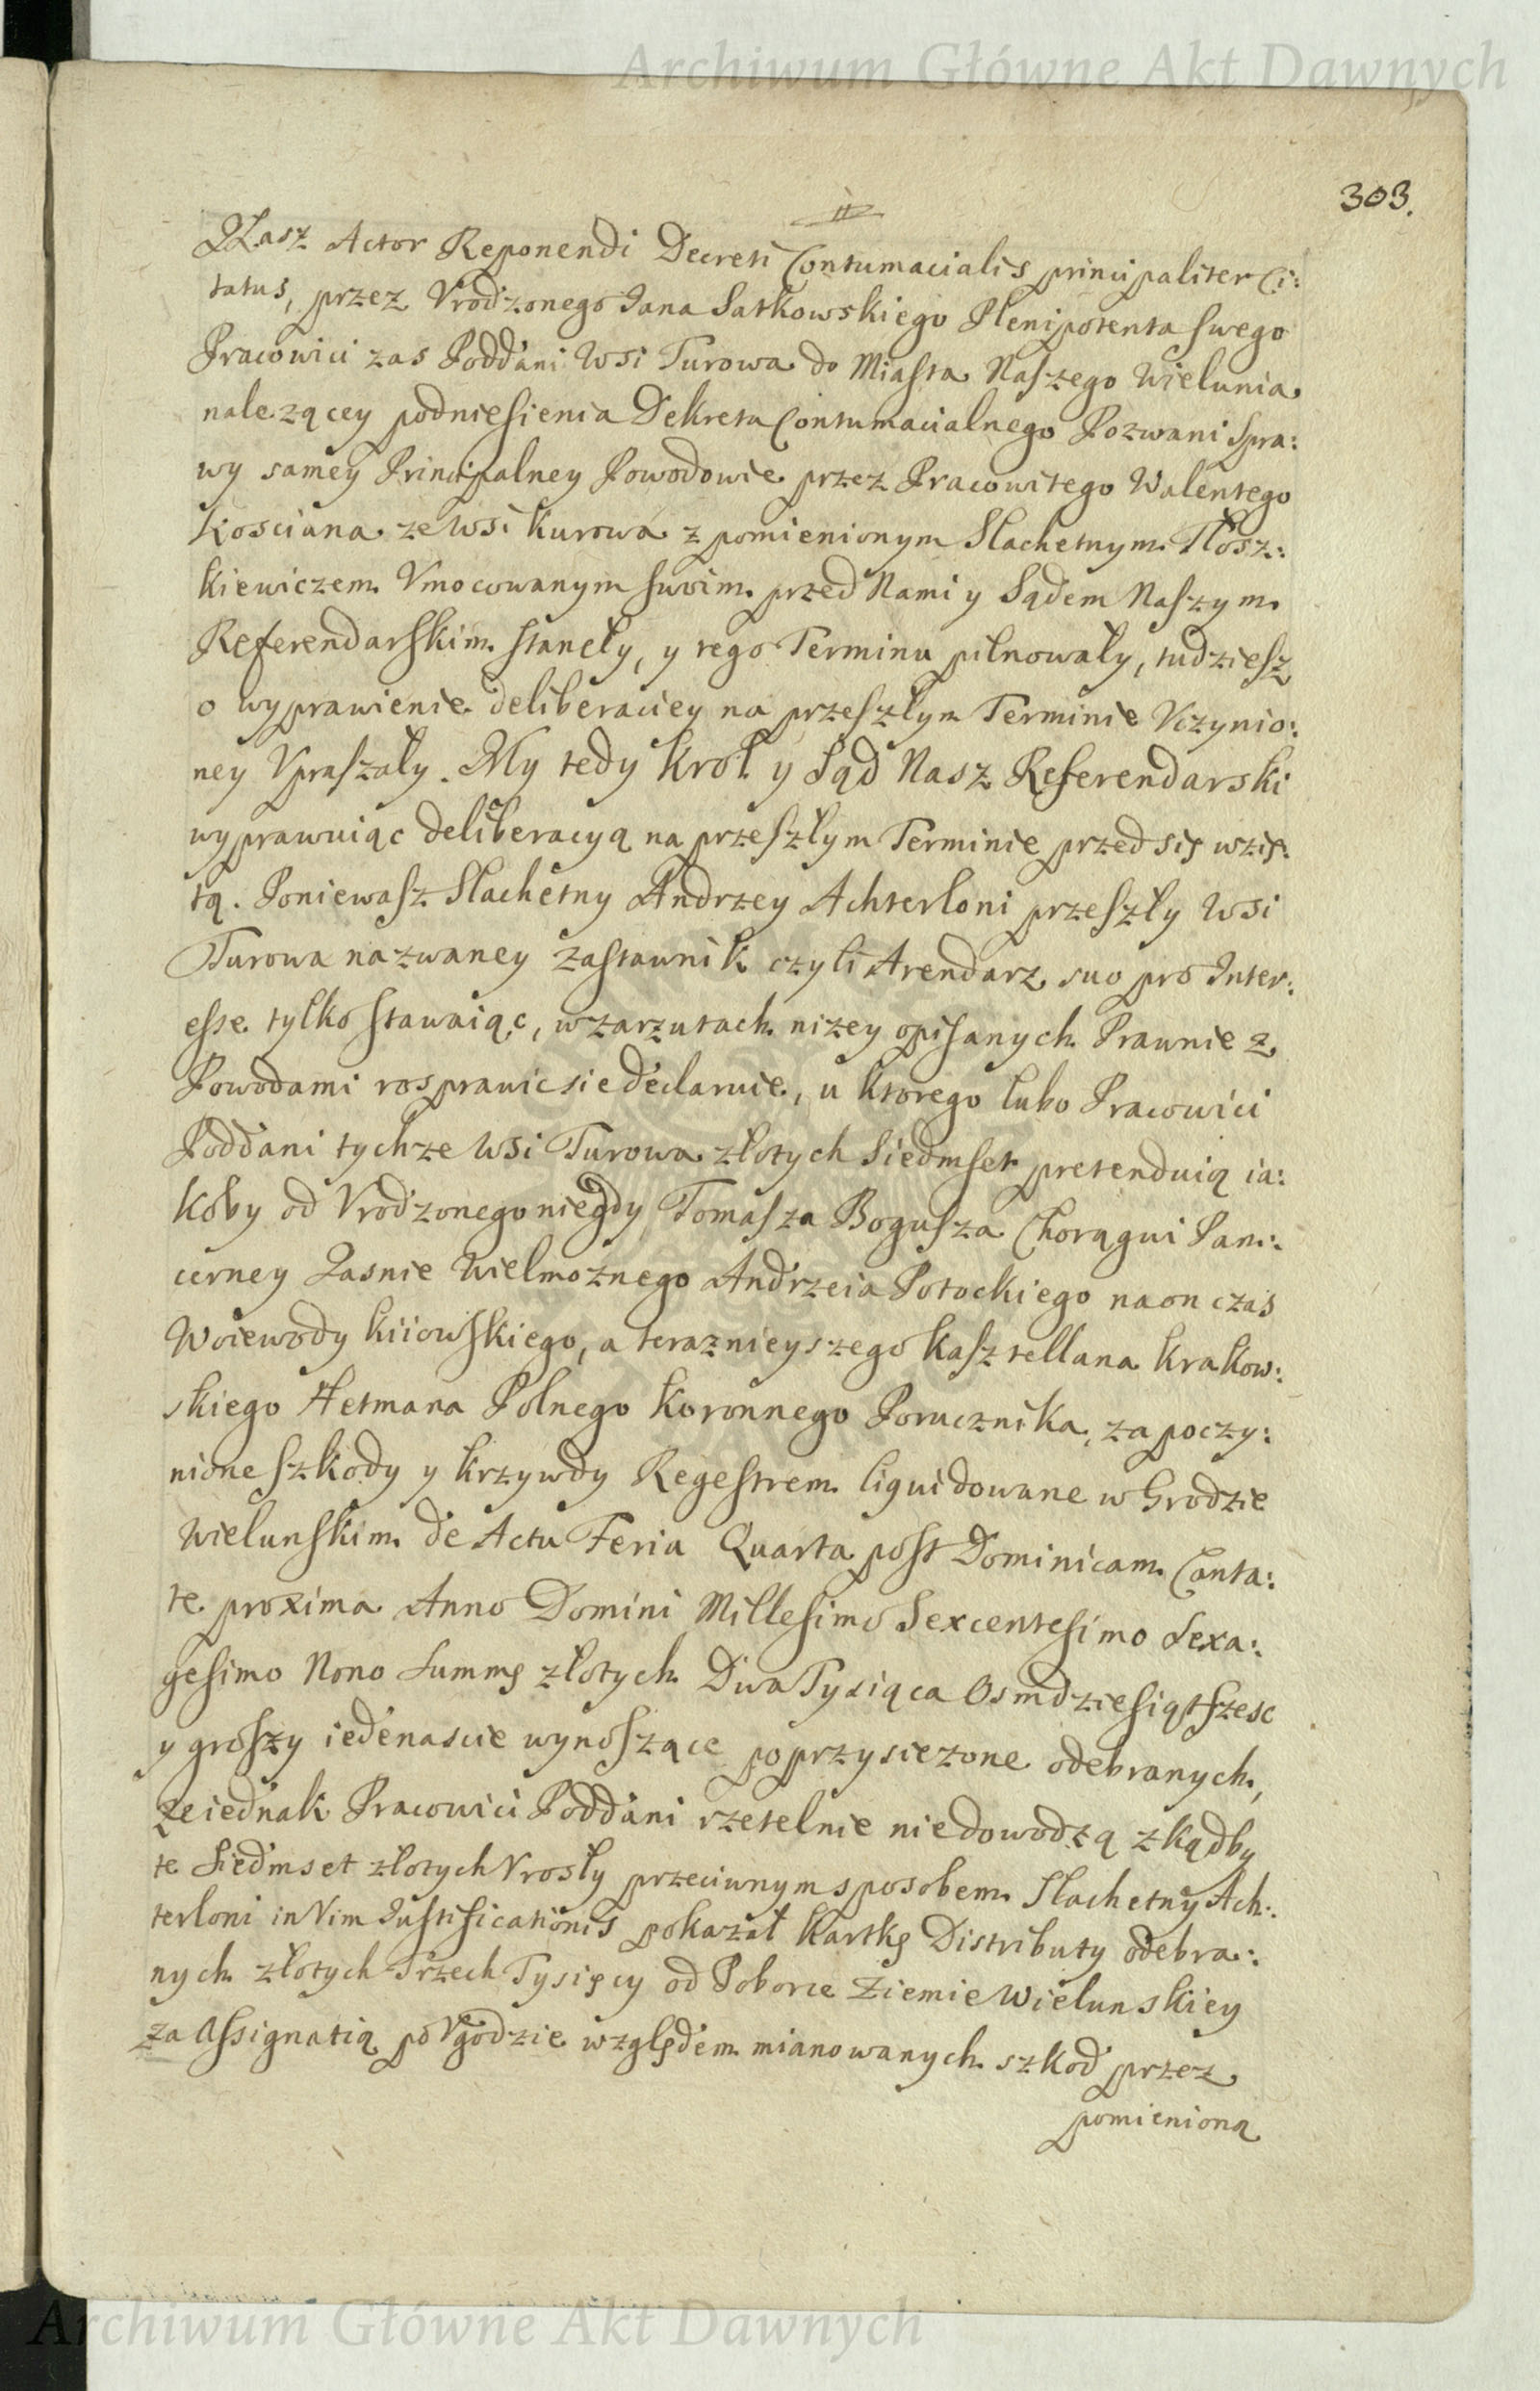 Archiwum Główne Akt Dawnych
303.
Nasz Actor Reponendi Decreti Contumacialis principaliter Ci:
tatus, przez Vrodzonego Jana Satkowskiego Plenipotenta swego
Pracowici zas Poddani Wsi Turowa do Miasta Naszego Wielunia
nalezącey podniesienia Dekretu Contumacialnego Pozwani Spra:
wy samey Principalney Powodowie przez Pracowitego Walentego
Kosciana ze Wsi Kurowa z pomienionym Slachetnym Tłosz:
kiewiczem Vmocowanym swoim przed Nami y Sądem Naszym
Referendarskim staneły, y tego Terminu pilnowały, tudziesz
o wyprawienie deliberaciey na przeszłym Terminie Vczynio:
ney Vpraszały. My tedy Krol y Sąd Nasz Referendarski
wyprawuiąc deliberacyą na przeszłym Terminie przed się wzię:
tą. Poniewasz Slachetny Andrzey Achterloni przeszły Wsi
Turowa nazwaney Zastawnik czyli Arendarz suo pro Inter:
esse tylko stawaiąc, w zarzutach nizey opisanych Prawnie z
Powodami rosprawic sie declaruie, u ktorego lubo Pracowici
Poddani tychze Wsi Turowa złotych Siedmset pretenduią ia:
koby od Vrodzonego niegdy Tomasza Bogusza Chorągwi Pan:
cerney Jasnie Wielmoznego Andrzeia Potockiego na on czas
Woiewody Kiiowskiego, a teraznieyszego Kasztellana Krakow:
skiego Hetmana Polnego Koronnego Porucznika, za poczy:
nione szkody y krzywdy Regestrem liquidowane w Grodzie
Wielunskim de Actu Feria Quarta post Dominicam Canta:
te proxima Anno Domini Millesimo Sexcentesimo Sexa:
gesimo Nono Summę złotych Dwa Tysiąca Osmdziesiąt szesc
y groszy iedenascie wynoszące poprzysiezone odebranych,
ze iednak Pracowici Poddani rzetelnie niedowodzą zkądby
te Siedmset złotych Vrosły przeciwnym sposobem Slachetny Ach:
terloni in Vim Justificationis pokazał kartkę Distributy odebra:
nych złotych Trzech Tysięcy od Poborce Ziemie Wielunskiey
za Assignatią po Vgodzie względem mianowanych szkod przez
pomienioną
Archiwum Główne Akt Dawnych